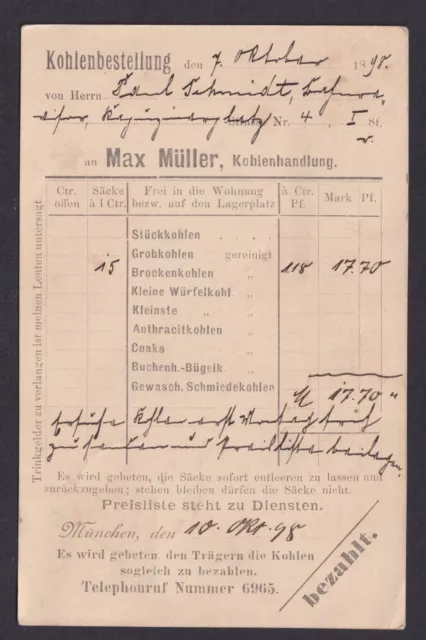 Kohlenbestellung den 7. Oktober 1898.
von Herrn Paul Schmidt,
Kapuzinerplatz Nr. 4 I St.
r.
an Max Müller, Kohlenhandlung.
Ctr. offen
Säcke à 1 Ctr.
Frei in die Wohnung bezw. auf den Lagerplatz
à Ctr. Pf.
Mark Pf.
Stückkohlen . . .
Grobkohlen gereinigt
15 Brockenkohlen „ 118 17.70
Kleine Würfelkohl. „
Kleinste „ „
Anthracitkohlen „
Coaks „
Buchenh.-Bügelk. „
Gewasch. Schmiedekohlen
M 17.70 „
Ersuche Kohlen erst Montag früh
zu senden und Preisliste beilegen.
Trinkgelder zu verlangen ist meinen Leuten untersagt
Es wird gebeten, die Säcke sofort entleeren zu lassen und
zurückzugeben; stehen bleiben dürfen die Säcke nicht.
Preisliste steht zu Diensten.
München, den 10. Okt. 98
Es wird gebeten den Trägern die Kohlen
sogleich zu bezahlen.
Telephonruf Nummer 6965.
bezahlt.